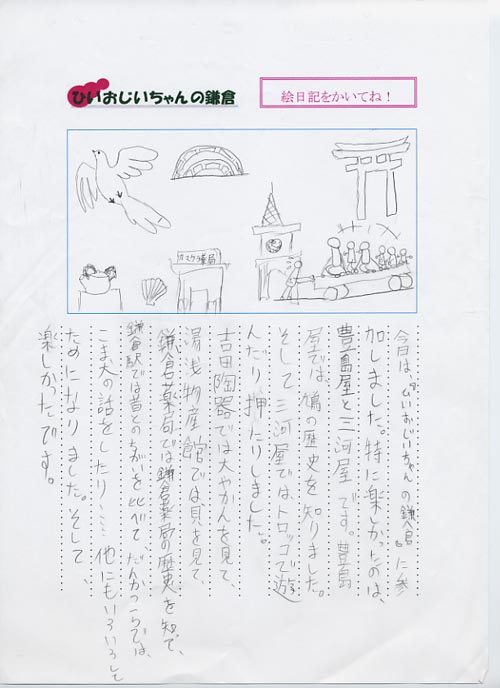 ひいおじいちゃんの鎌倉
絵日記をかいてね！
カマクラ薬局
今日は、『ひいおじいちゃんの鎌倉』に参
加しました。特に楽しかったのは、
豊島屋と三河屋です。豊島
屋では、鳩の歴史を知りました。
そして三河屋ではトロッコで遊
んだり押たりしました。
吉田陶器では大やかんを見て、
湯浅物産館では貝を見て、
鎌倉薬局では鎌倉薬局の歴史を知て、
鎌倉駅では昔とのちがいを比べて だんかつらでは、
こま犬の話をしたり…… 他にもいろいろして
ためになりました。そして、
楽しかったです。